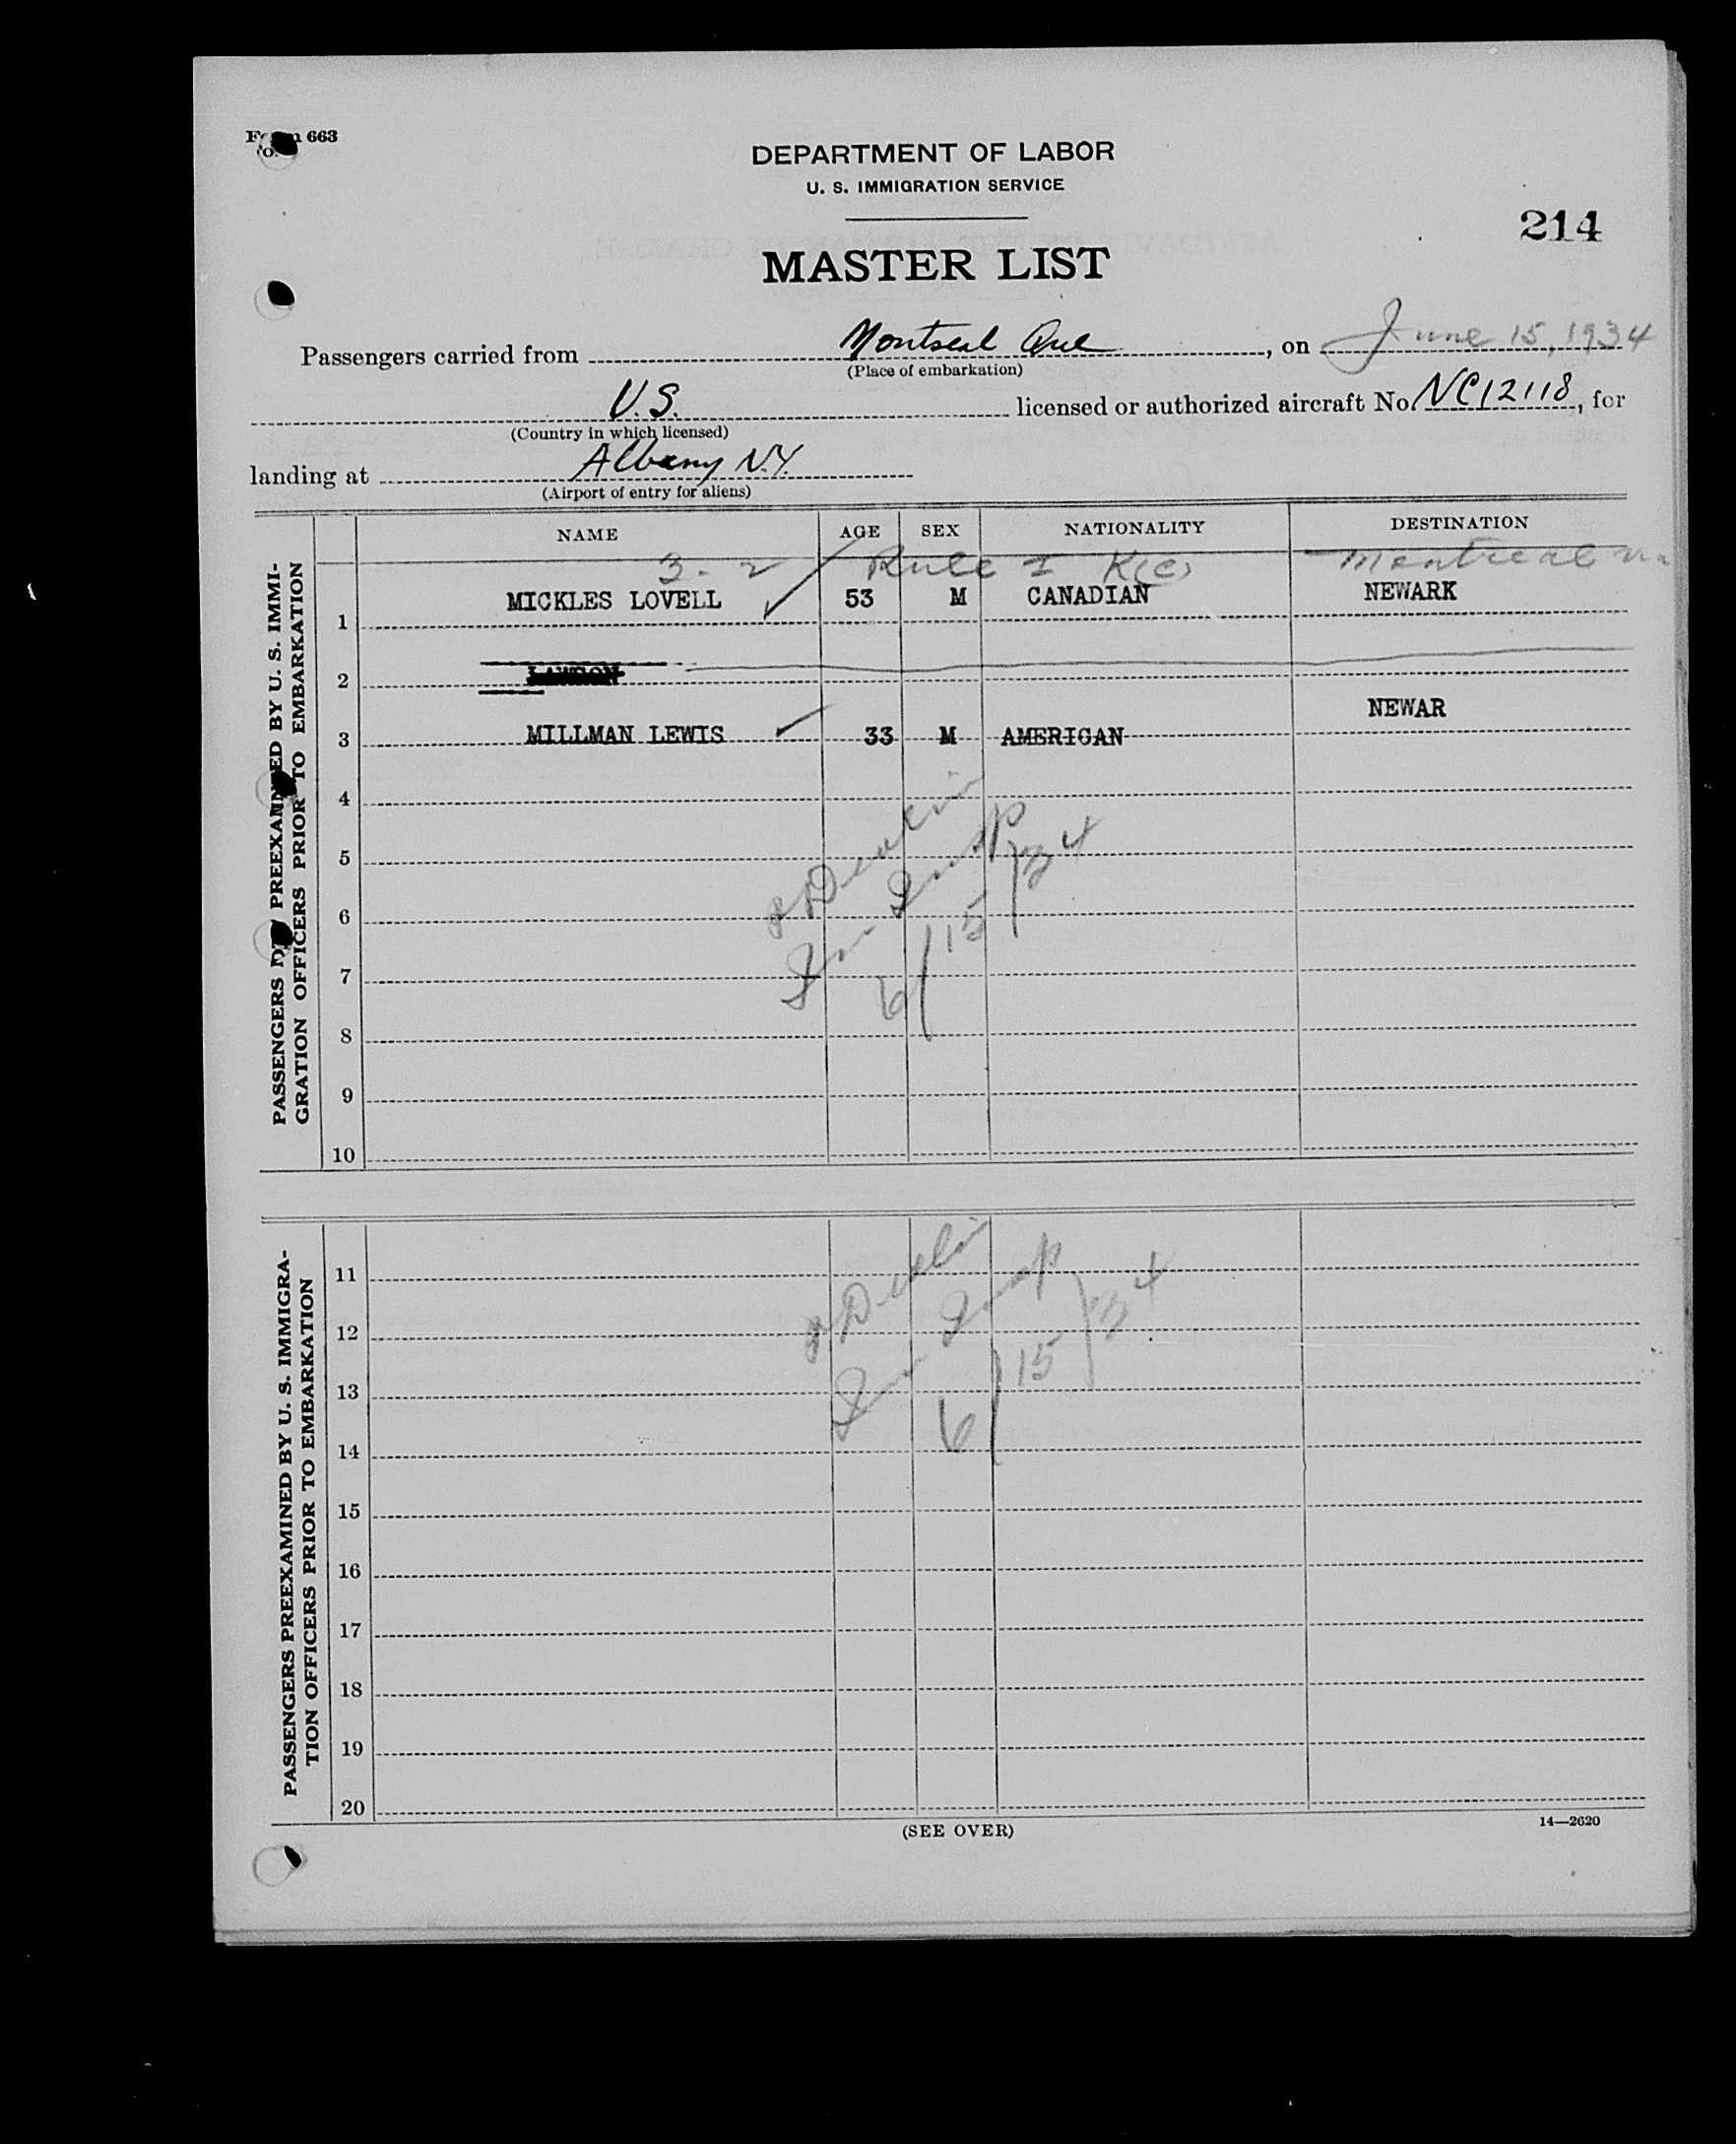 Form 663
DEPARTMENT OF LABOR
U. S. IMMIGRATION SERVICE
214
MASTER LIST
Passengers carried from Montreal Que, on June 15, 1934
(Place of embarkation)
U.S. licensed or authorized aircraft No. NC12118, for
(Country in which licensed)
landing at Albany N.Y.
(Airport of entry for aliens)
NAME AGE SEX NATIONALITY DESTINATION
3-2 Rule I K(c) Montreal
1 MICKLES LOVELL 53 M CANADIAN NEWARK
2
3 MILLMAN LEWIS 33 M AMERICAN NEWAR
4
5
6
7
8
9
10
Devlin
Imm Insp
6/15/34
PASSENGERS PREEXAMINED BY U. S. IMMI-
GRATION OFFICERS PRIOR TO EMBARKATION
11
12
13
14
15
16
17
18
19
20
Devlin
Imm Insp
6/15/34
PASSENGERS PREEXAMINED BY U. S. IMMIGRA-
TION OFFICERS PRIOR TO EMBARKATION
(SEE OVER)
14—2620